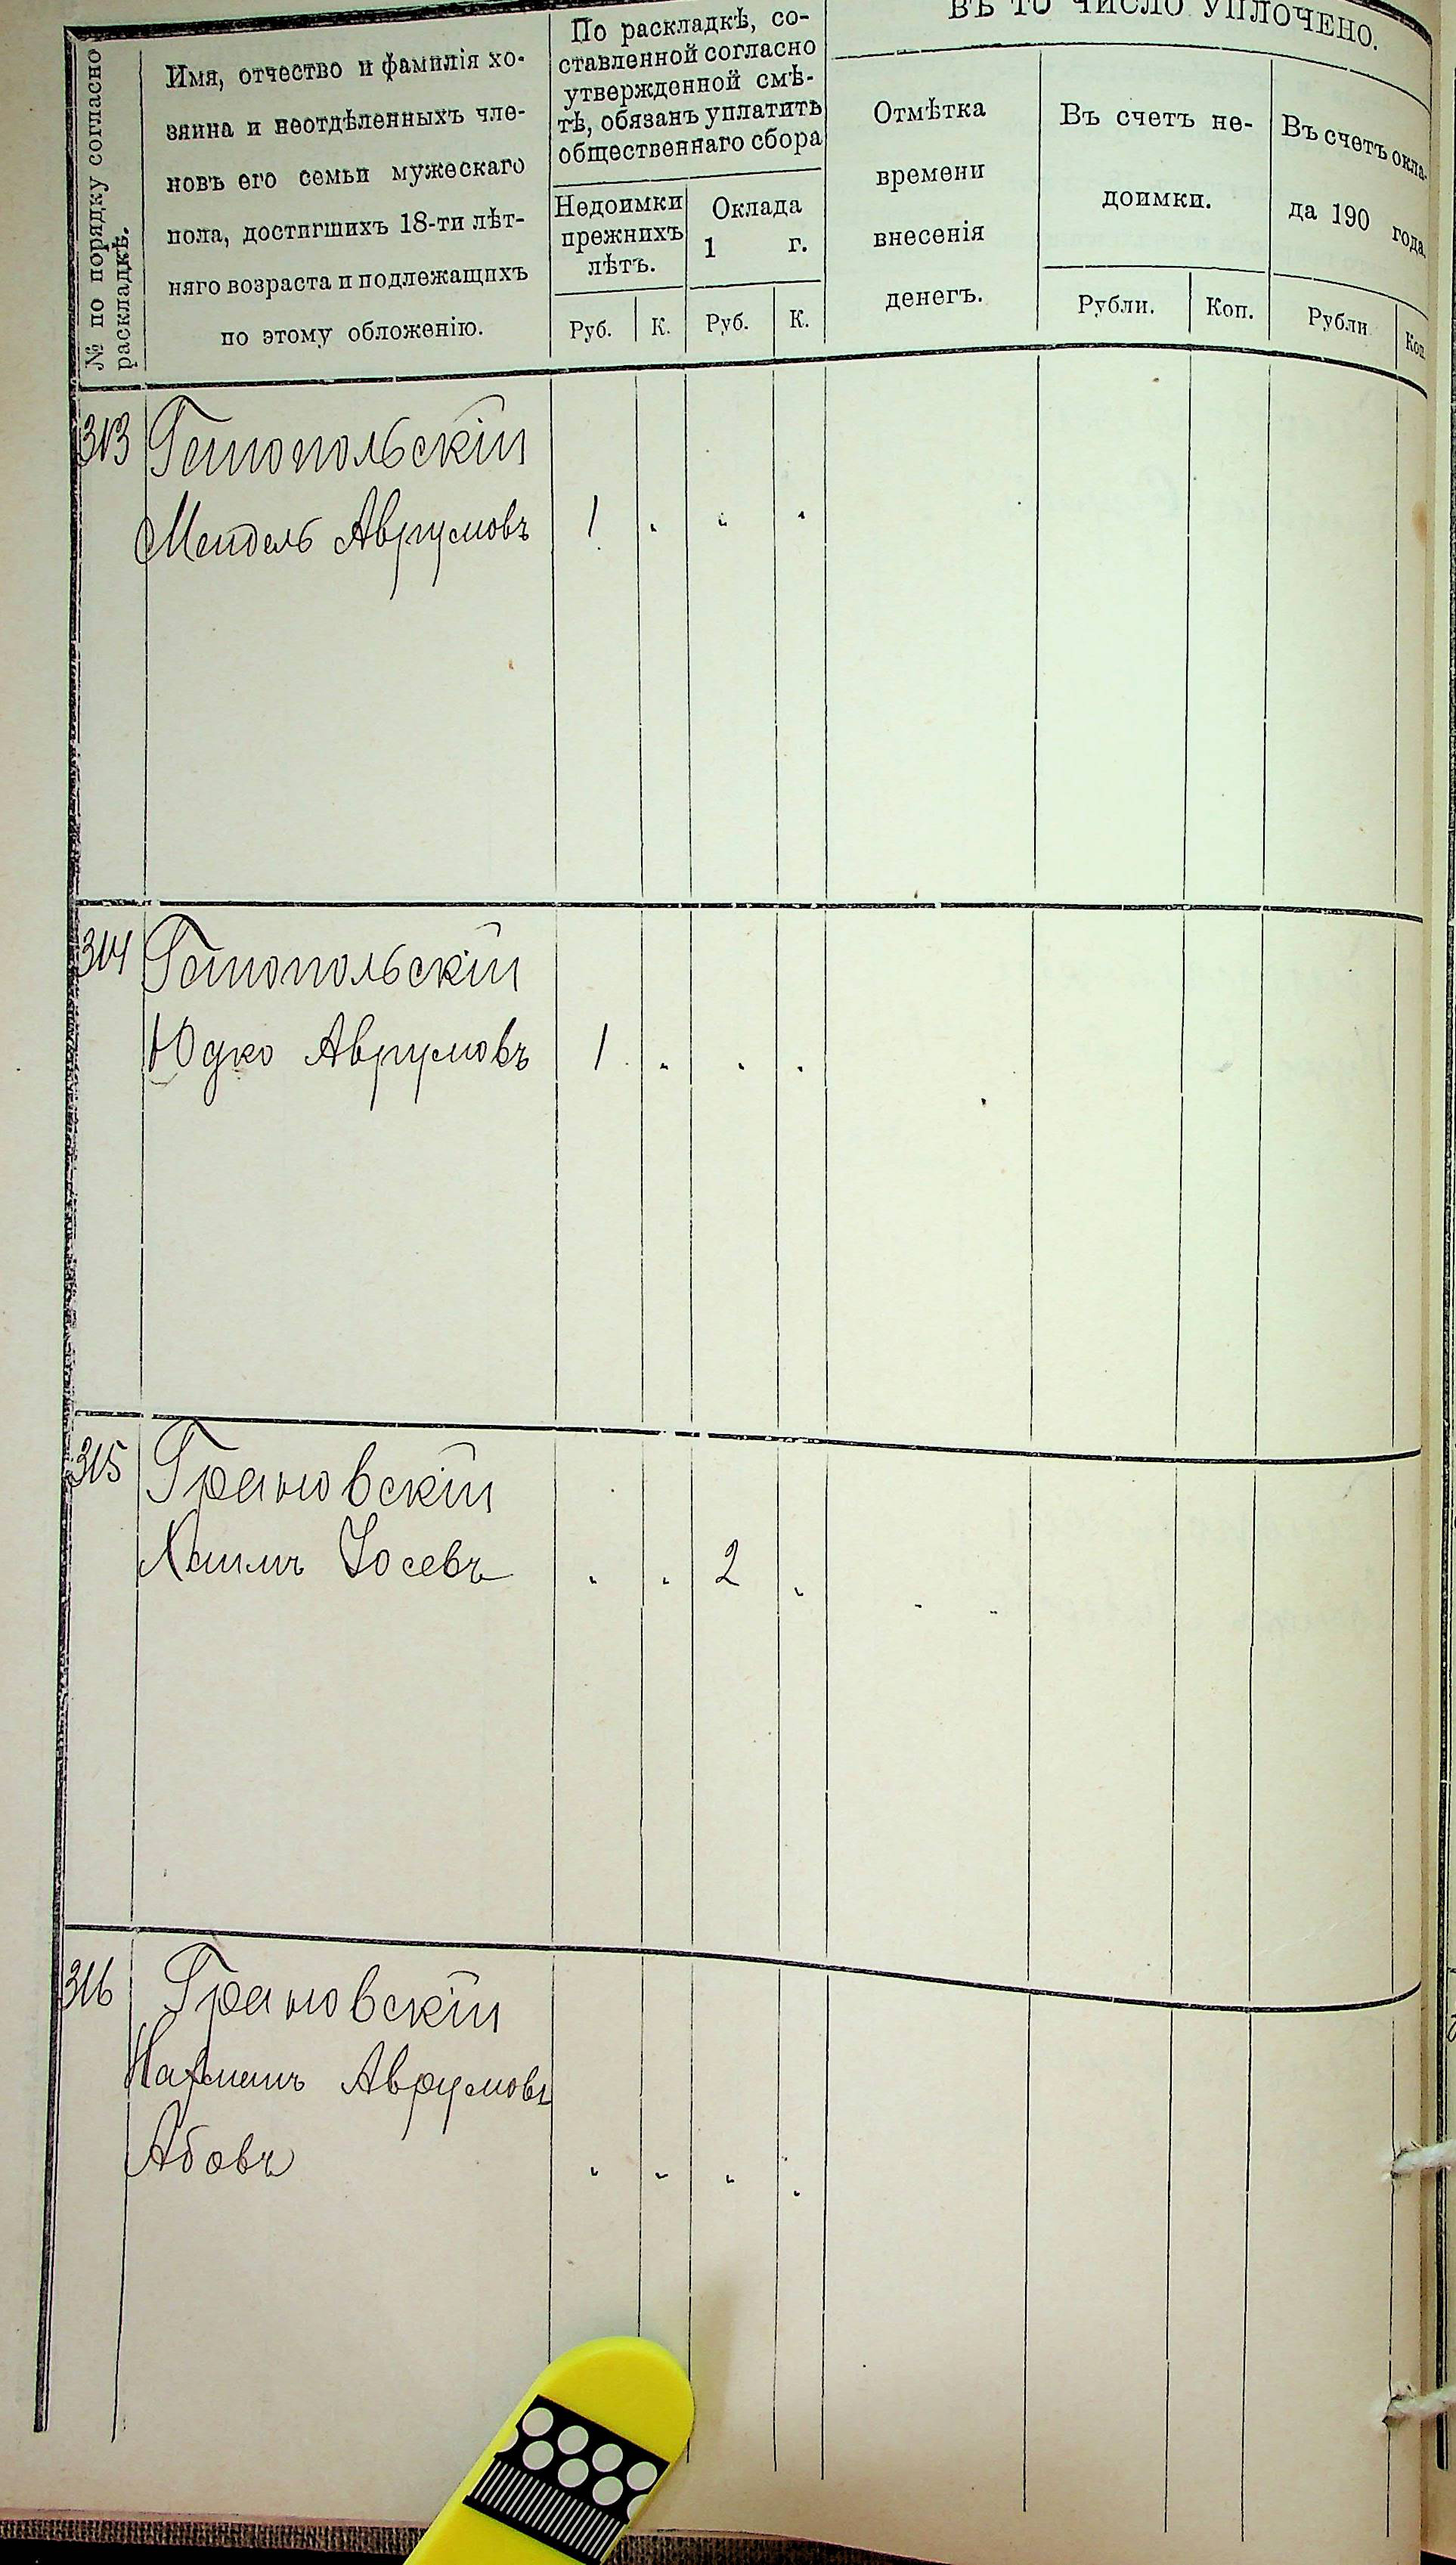 № по порядку согласно
раскладкѣ.
Имя, отчество и фамилія хо-
зяина и неотдѣленныхъ чле-
новъ его семьи мужескаго
пола, достигшихъ 18-ти лѣт-
няго возраста и подлежащихъ
по этому обложенію.
По раскладкѣ, со-
ставленной согласно
утвержденной смѣ-
тѣ, обязанъ уплатить
общественнаго сбора
Недоимки
прежнихъ
лѣтъ.
Руб. К.
Оклада
1 г.
Руб. К.
ВЪ ТО ЧИСЛО УПЛОЧЕНО.
Отмѣтка
времени
внесенія
денегъ.
Въ счетъ не-
доимки.
Рубли. Коп.
Въ счетъ окла-
да 190 года.
Рубли Коп.
313 Гетопольскій
Мендель Аврумовъ 1
314 Гетопольскій
Юдко Аврумовъ 1
315 Грановскій
Хаимъ Іосевъ 2
316 Грановскій
Нахманъ Аврумовъ
Абовъ